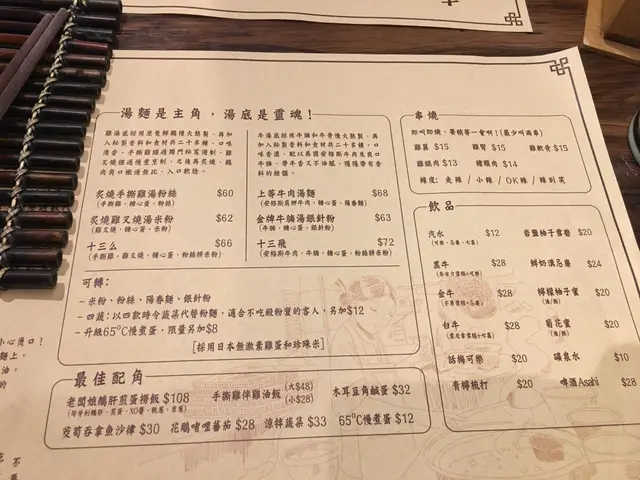 湯麵是主角，湯底是靈魂！
雞湯底採用原隻鮮雞慢火熬製，再加
入秘製香料和食材共二十多種，口味
清香。手撕雞經過獨門秘製慢制，雞
叉燒經過慢煮烹制，之後再炙燒，雞
肉爽口嫩滑無比，入口軟捻。
炙燒手撕雞湯粉絲 $60
(手撕雞、糖心蛋、粉絲)
炙燒雞叉燒湯米粉 $62
(雞叉燒、糖心蛋、米粉)
十三么 $66
(手撕雞、雞叉燒、糖心蛋、粉絲拼米粉)
牛湯底採用牛腩和牛骨慢火熬製，再
加入秘製香料和食材共二十多種，口
味香濃，配以美國安格斯牛肉及爽口
牛腩，帶牛香又不油膩，隱隱帶有香
料的餘韻。
上等牛肉湯麵 $68
(安格斯肩胛牛肉、糖心蛋、陽春麵)
金牌牛腩湯銀針粉 $63
(牛腩、糖心蛋、銀針粉)
十三飛 $72
(安格斯牛肉、牛腩、糖心蛋、粉絲拼米粉)
可轉：
- 米粉、粉絲、陽春麵、銀針粉
- 四蔬：以四款時令蔬菜代替粉麵，適合不吃澱粉質的客人，另加$12
- 升級65°C慢煮蛋，限量另加$8
[採用日本無激素雞蛋和珍珠米]
最佳配角
老闆娘鵝肝煎蛋撈飯 $108
手撕雞伴雞油飯 (大$48)
(小$28)
木耳豆角鹹蛋 $32
茭筍吞拿魚沙律 $30 花鵰啫喱蕃茄 $28 涼拌蔬菜 $33 65°C慢煮蛋 $12
串燒
即叫即燒，要稍等一會啊！(最少叫兩串)
雞翼 $15 雞腎 $15 雞軟骨 $15
雞腿肉 $13 豬頸肉 $14
辣度：走辣 / 小辣 / OK辣 / 辣到笑
飲品
汽水 $12
(可樂、忌廉、七喜)
岩鹽柚子雪碧 $20
黑牛 $28
鮮奶溝忌廉 $24
金牛 $28
檸檬柚子蜜 $20
(凍/熱)
白牛 $28
菊花蜜 $20
(凍/熱)
話梅可樂 $20
礦泉水 $10
青檸梳打 $20
啤酒Asahi $28
小心燙口！
麵上。
油。